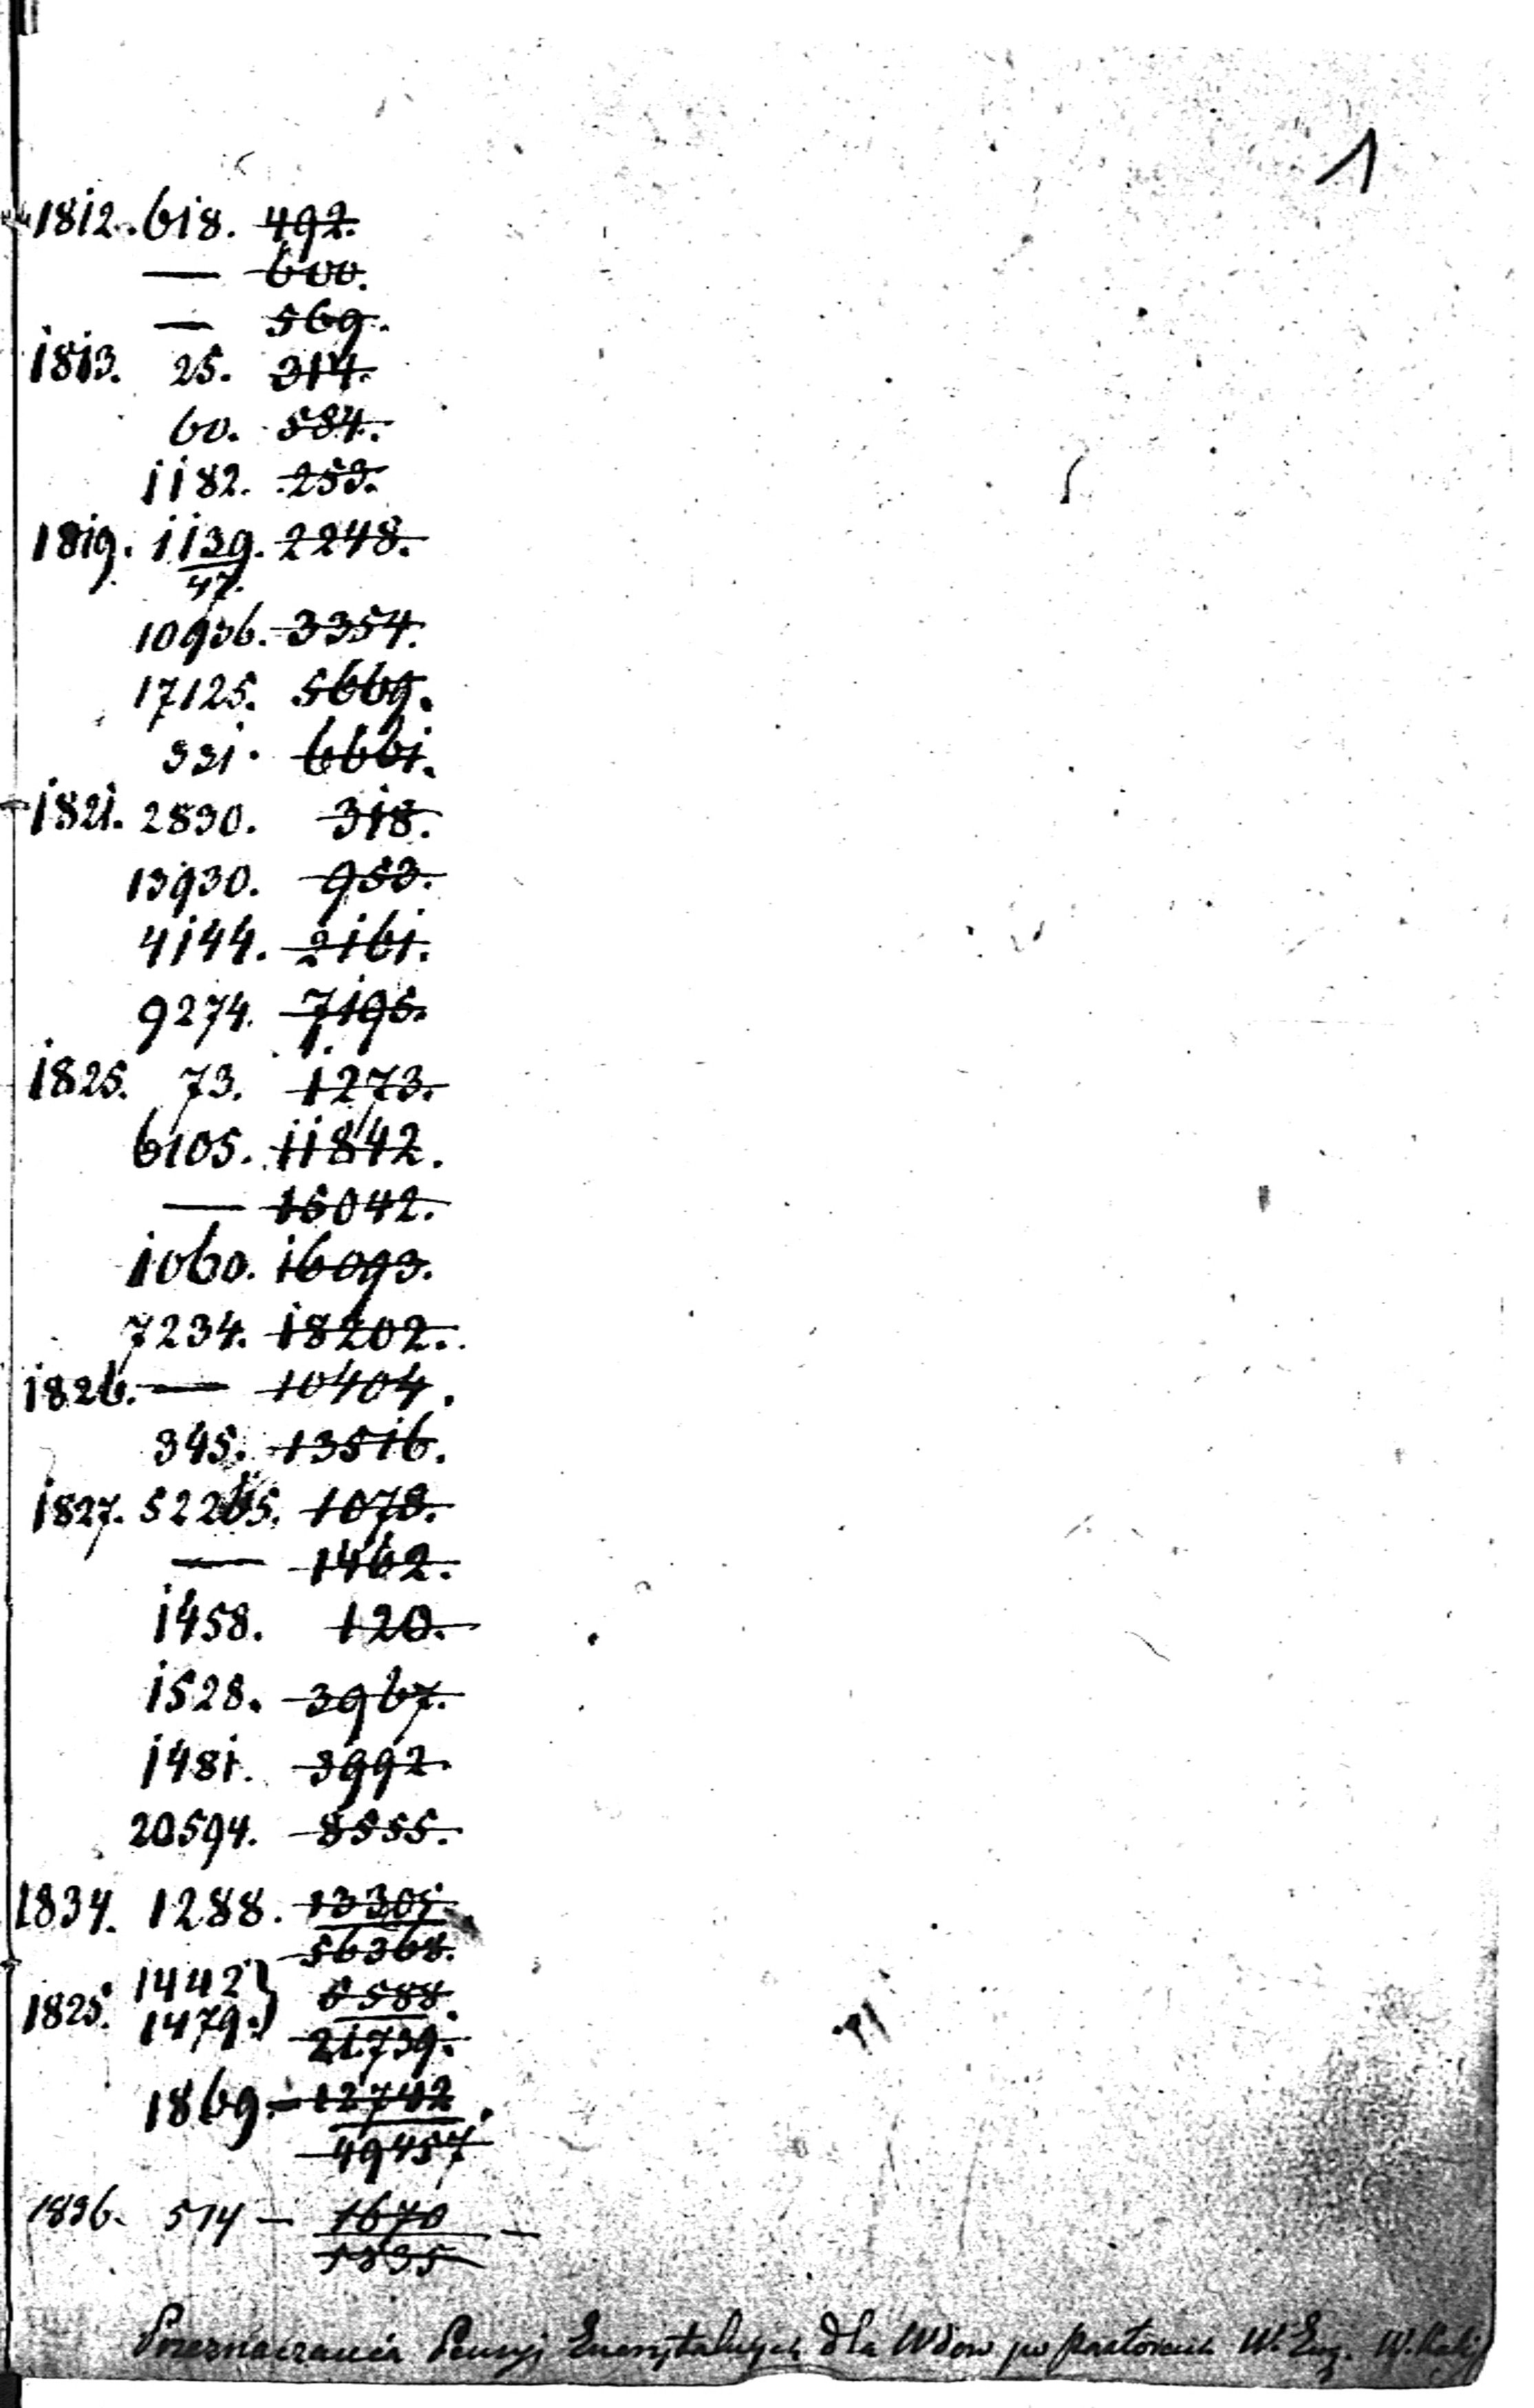 1
1812. 618. 492.
— 600.
— 569.
1813. 25. 314.
60. 584.
1182. 253.
1819. 1139. 2248.
47.
10936. 3354.
17125. 5669.
331. 6661.
1821. 2830. 318.
13930. 953.
4144. 2161.
9274. 7195.
1825. 73. 1273.
6105. 11842.
— 15042.
1060. 16093.
7234. 18202.
1826. — 10404.
345. 13516.
1827. 1078.
— 1462.
1458. 120.
1528. 3967.
1481. 3992.
20594. 8555.
1834. 1288. 13305
56368.
1825. 1442 } 6588.
1479. 21739.
1869. — 12742
49457
1836. 514 — 1670 —
1835
Przeznaczania Pensyj Emerytalnych dla Wdow po Pastorach W. Ewg. W. Kalis